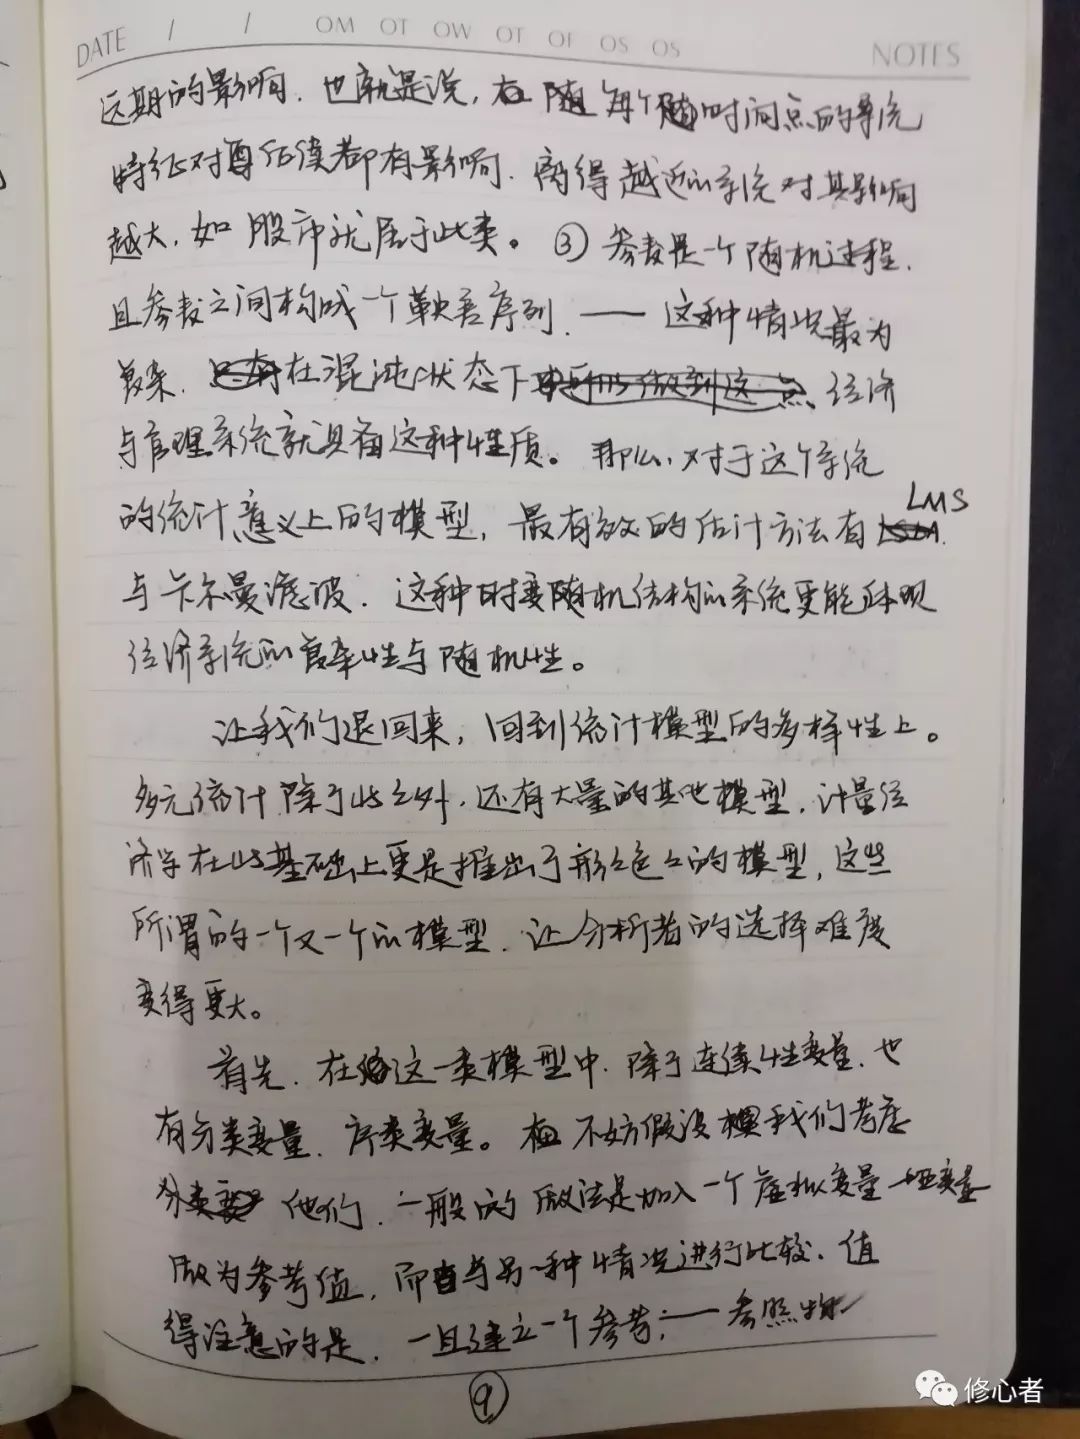 DATE / / OM OT OW OT OF OS OS NOTES
远期的影响. 也就是说, 每个时间点的系统
特征对估值都有影响. 离得越近的系统对其影响
越大. 如股市就属于此类。 ③ 参数是一个随机过程.
且参数之间构成一个鞅差序列. —— 这种情况最为
复杂. 在混沌状态下 经济
与管理系统就具备这种性质。 那么, 对于这个系统
的统计意义上的模型, 最有效的估计方法有 LMS
与卡尔曼滤波. 这种时变随机结构的系统更能体现
经济系统的复杂性与随机性。
让我们退回来, 回到统计模型的多样性上。
多元统计除了此之外, 还有大量的其他模型. 计量经
济学在此基础上更是推出了形々色々的模型, 这些
所谓的一个又一个的模型. 让分析者的选择难度
变得更大。
首先. 在这一类模型中. 除了连续性变量. 也
有分类变量. 序类变量。 不妨假设我们考虑
他们. 一般的做法是加入一个虚拟变量—哑变量
做为参考值, 而与另一种情况进行比较. 值
得注意的是, 一旦建立一个参考; —— 参照物
9
修心者